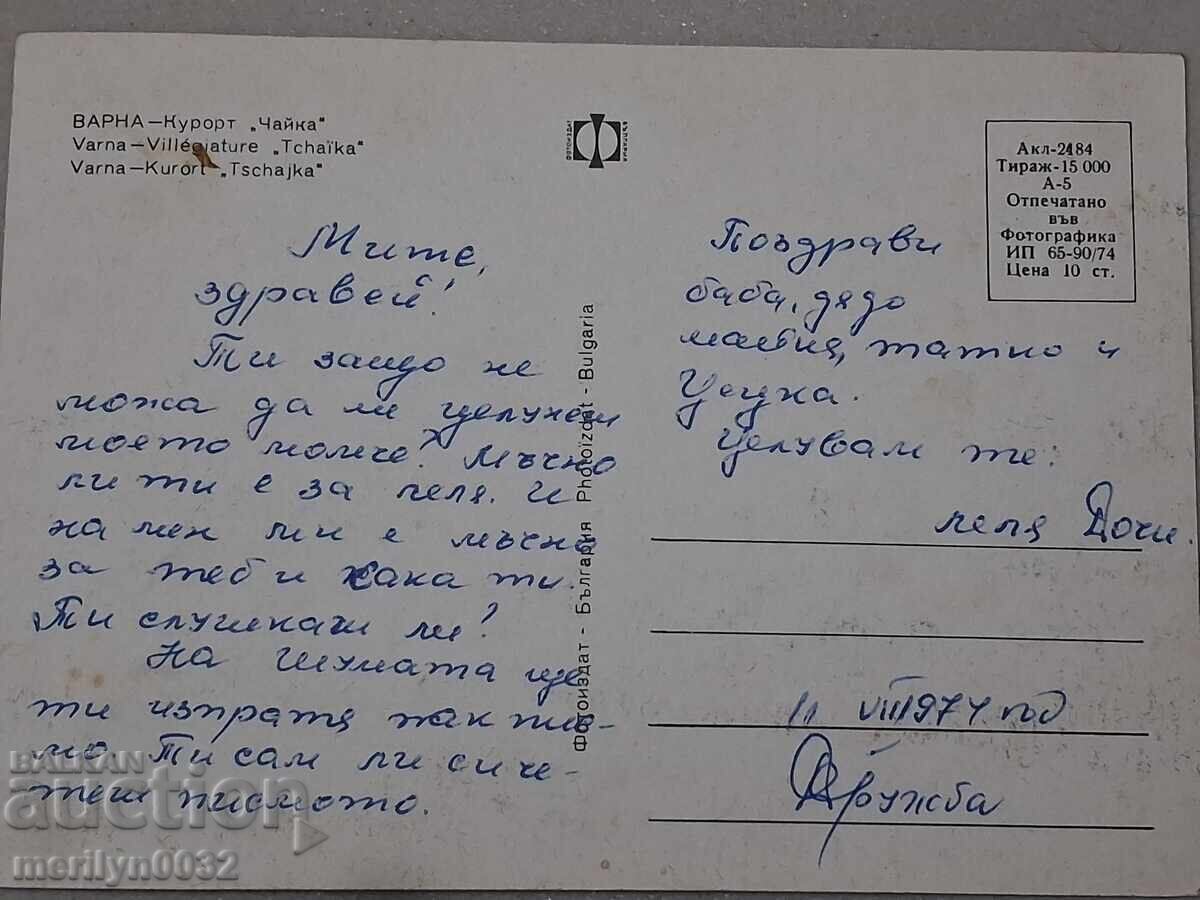 ВАРНА—Курорт „Чайка“
Varna—Villégiature „Tchaïka“
Varna—Kurort „Tschajka“
ФОТОИЗДАТ БЪЛГАРИЯ
Акл-2484
Тираж-15 000
А-5
Отпечатано
във
Фотографика
ИП 65-90/74
Цена 10 ст.
Мите,
здравей!
Ти защо не
можа да ми целунеш
моето момче? Мъчно
ли ти е за леля. И
на мен ми е мъчно
за теб и кака ти.
Ти слушкаш ли?
На шумата ще
ти изпратя пак пис-
мо. Ти сам ли си че-
теш писмото.
Фотоиздат - България Photoizdat - Bulgaria
Поздрави
баба, дядо
майка, татко и
Целувам те:
леля Дочи.
11 VIII 974 год
Дружба
BALKAN
auction
merilyn0032